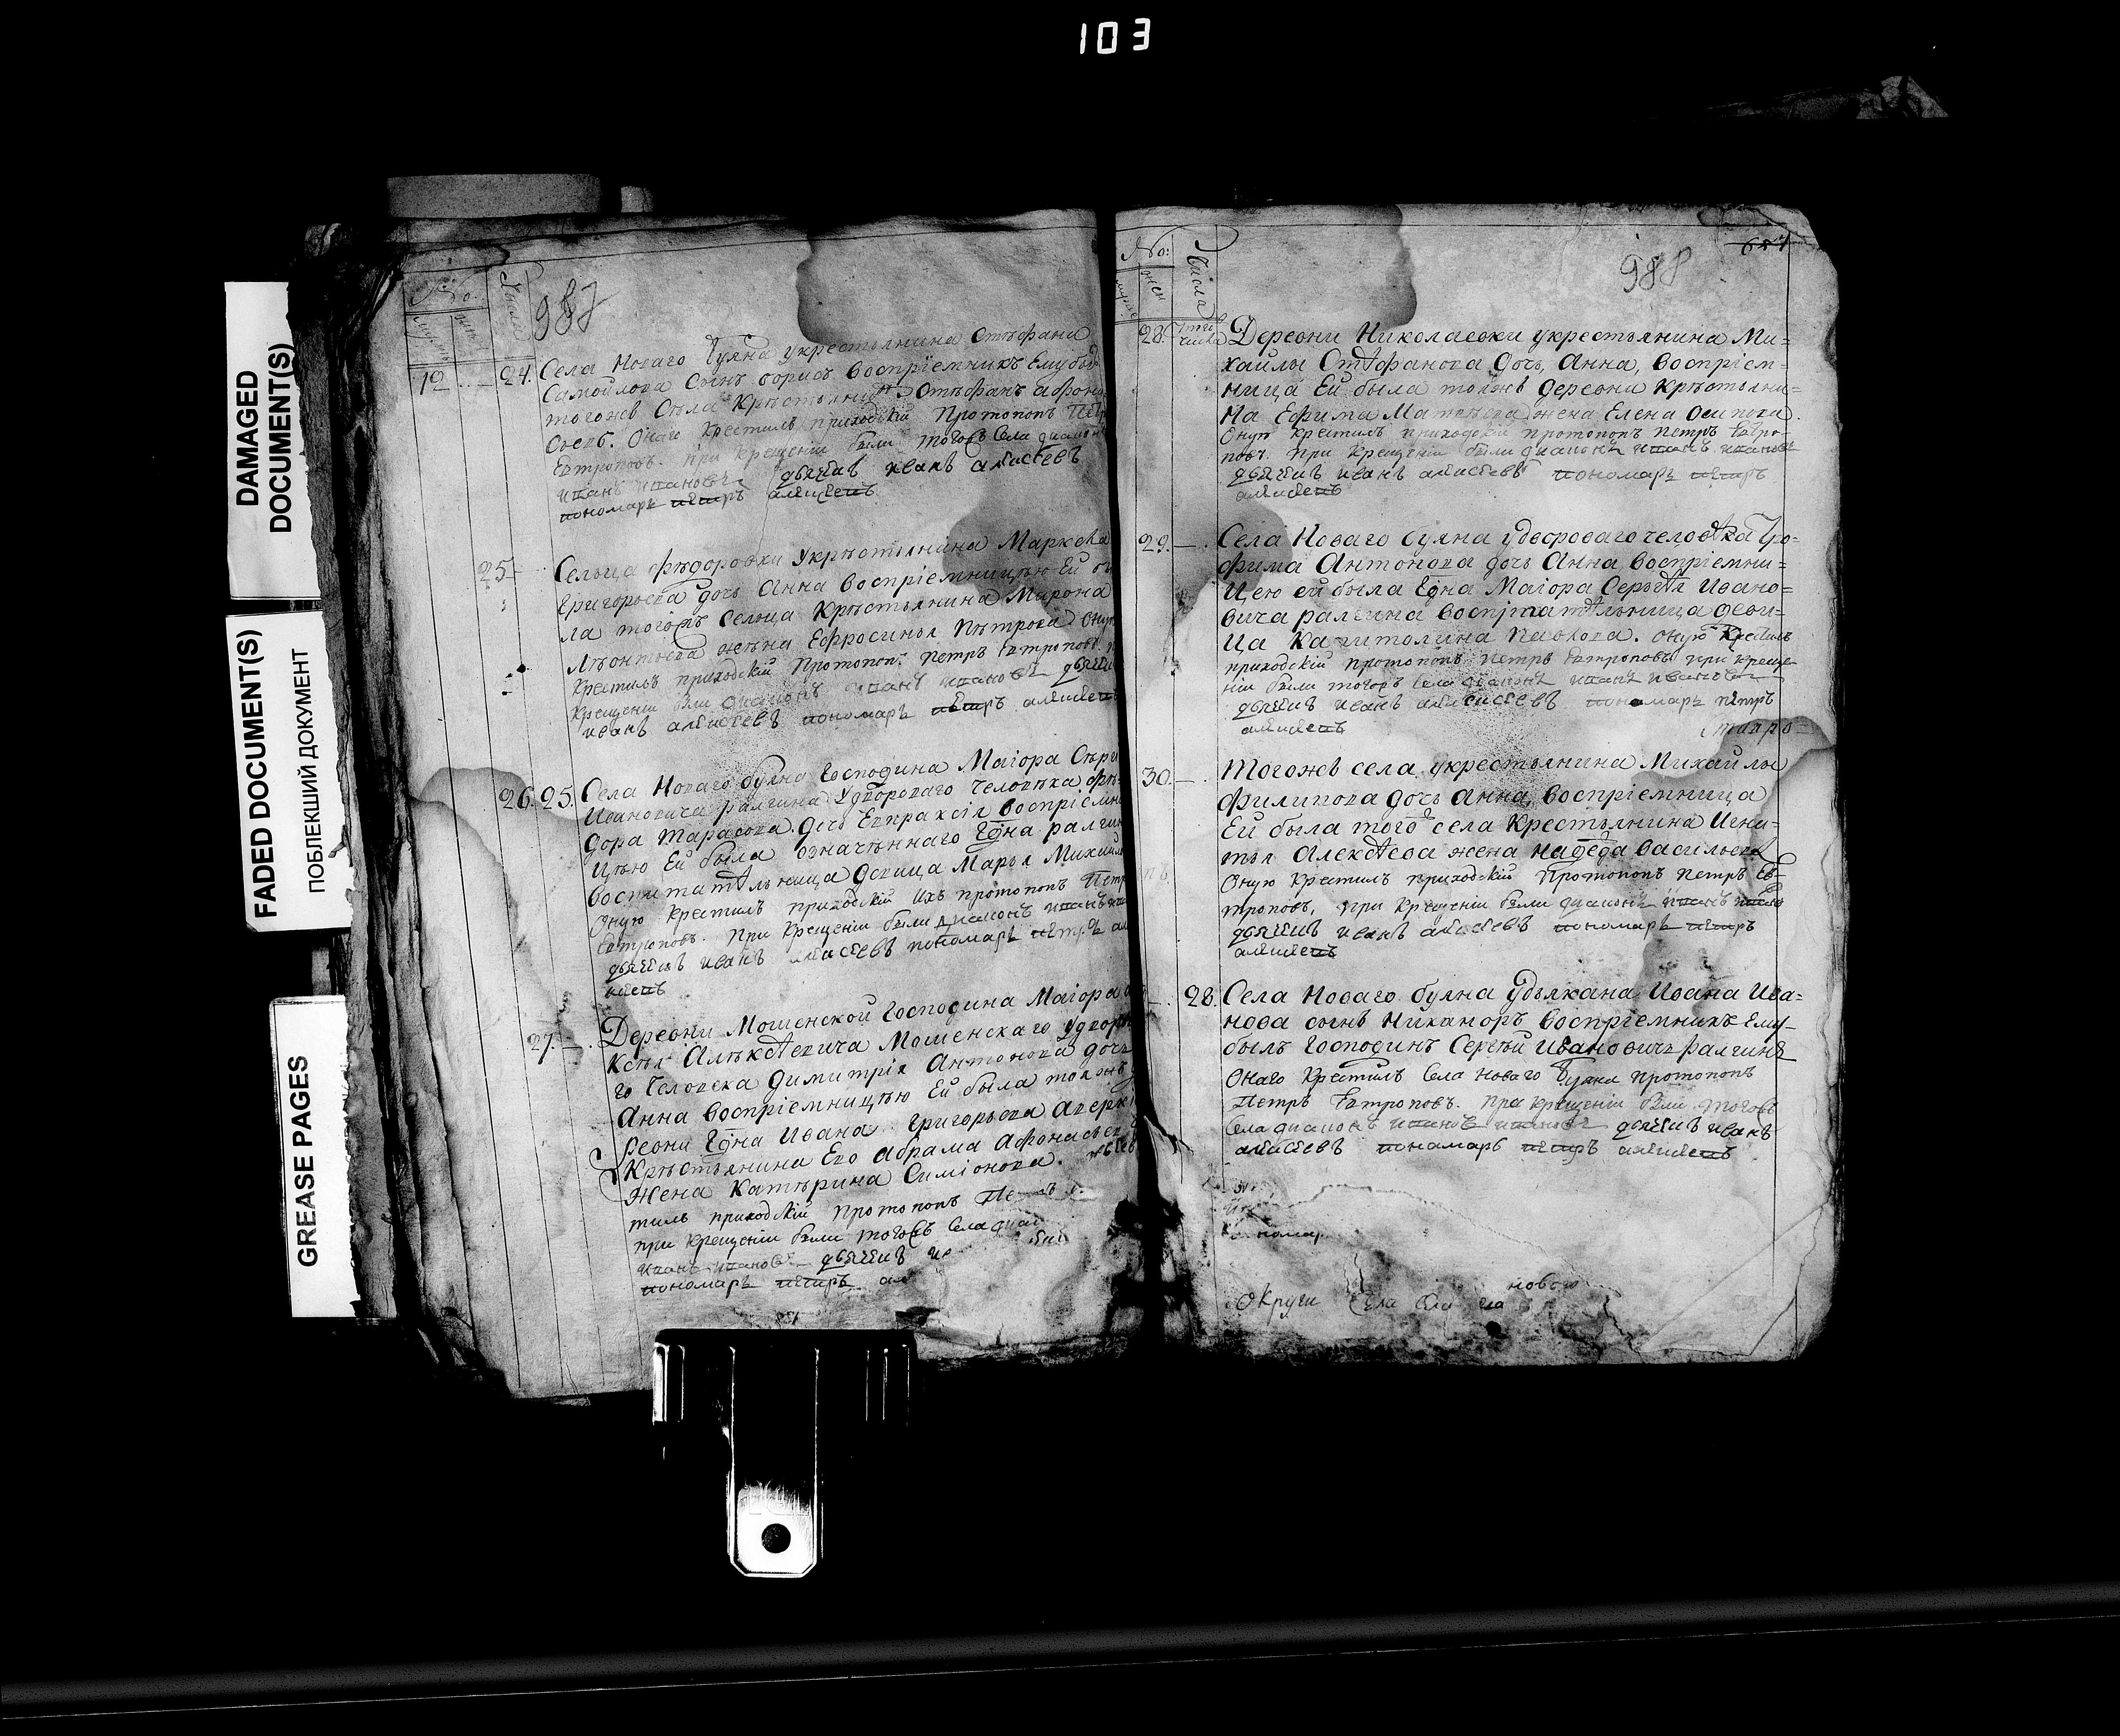 103
DAMAGED
DOCUMENT(S)
FADED DOCUMENT(S)
ПОБЛЕКШИЙ ДОКУМЕНТ
GREASE PAGES
№о:
числа
987
12 24. Села Новаго Буяна у крестьянина Стѣфана
Самойлова Сынъ борисъ восприемникъ Ему был
тогожъ Сѣла Крѣстьянинъ Стѣфанъ афона
сьевъ. Онаго крестилъ приходскій Протопопъ Петр
Евтроповъ. при крещеніи были тогожъ Села диаконъ
иванъ ивановъ дьячекъ иванъ алексѣевъ
пономарь петръ алексеевъ
25 Сельца Фѣдоровки Укрѣстьянина Марка
Григорьева дочь Анна Восприемницѣю Ей бы
ла тогожъ Сельца Крѣстьянина Мирона
Лѣонтьева жѣна Ефросинья Пѣтрова Оную
Крестилъ приходскій Протопопъ Петръ Евтроповъ
Крещеніи были диаконъ иванъ ивановъ дьячекъ
иванъ алексеевъ пономарь петръ алексеевъ
26. 25. Села Новаго буяна Господина Маіора Сѣрге
Ивановича ралгина Удвороваго Человѣка Фѣ
дора Тарасова дочь Евпраксія восприемни
цѣю Ей была означѣннаго Гдна ралгин
воспитатѣльница Девица Марья Михаил
Оную Крестилъ приходскій ихъ протопопъ Петр
Евтроповъ. При Крещеніи были диаконъ иванъ
дьячекъ иванъ алексеевъ пономарь петръ ал
ексеевъ
27. Деревни Мошенской Господина Маіора
Ксѣя Алѣксѣевича Мошенскаго Удворова
го Человека Димитрія Антонова дочь
Анна восприемницѣю Ей была тояжъ д
ревни Гдна Ивана Григорьева Аверк
Крѣстьянина Его Абрама Афонасьева
Жена Катѣрина Симіонова.
тилъ приходскій Протопопъ Пе
при Крещеніи были тогожъ Села диак
иванъ ивановъ дьячекъ ив
пономарь петръ ал
№о:
жен
числа
988
657
28. Деревни Николаевки укрестьянина Ми=
хайлы Стѣфанова дочь, Анна, восприем=
ница Ей была тояжѣ деревни Крѣстьяни=
на Ефима Матвѣева жена Елена Осипова.
Оную крестилъ приходскій протопопъ Петръ Евтро-
повъ. при Крещеніи были диаконъ иванъ ивановъ
дьячекъ иванъ алексеевъ пономарь петръ
алексеевъ
29. Села Новаго буяна удвороваго человѣка Тро-
фима Антонова дочь Анна, восприемни=
цею ей была Гдна Маіора Сергѣя Ивано=
вича ралгина воспитатѣльница деви=
ца Капитолина Павлова. оную Крестилъ
приходскій протопопъ Петръ Евтроповъ при креще
ніи были тогожъ Села диаконъ иванъ ивановъ
дьячекъ иванъ алексеевъ пономарь пѣтръ
алексеевъ
30. Тогожѣ села укрестьянина Михайлы
Филипова дочь Анна, восприемница
Ей была того села Крестьянина Игна=
тья Алексѣева жена Надѣда васильева
Оную Крестилъ приходскій Протопопъ Петръ Ев-
троповъ, при Крещеніи были диаконъ иванъ
дьячекъ иванъ алексеевъ пономарь петръ
алексеевъ
28. Села Новаго буяна Удьякана Ивана Ива=
нова сынъ Никаноръ восприемникъ Ему
былъ Господинъ Сергѣй Ивановичь ралгинъ
Онаго Крестилъ Села Новаго Буяна протопопъ
Петръ Евтроповъ. при крещеніи были тогожъ
Села диаконъ иванъ ивановъ дьячекъ иванъ
алексеевъ пономарь петръ алексеевъ
новаго
Округи Села